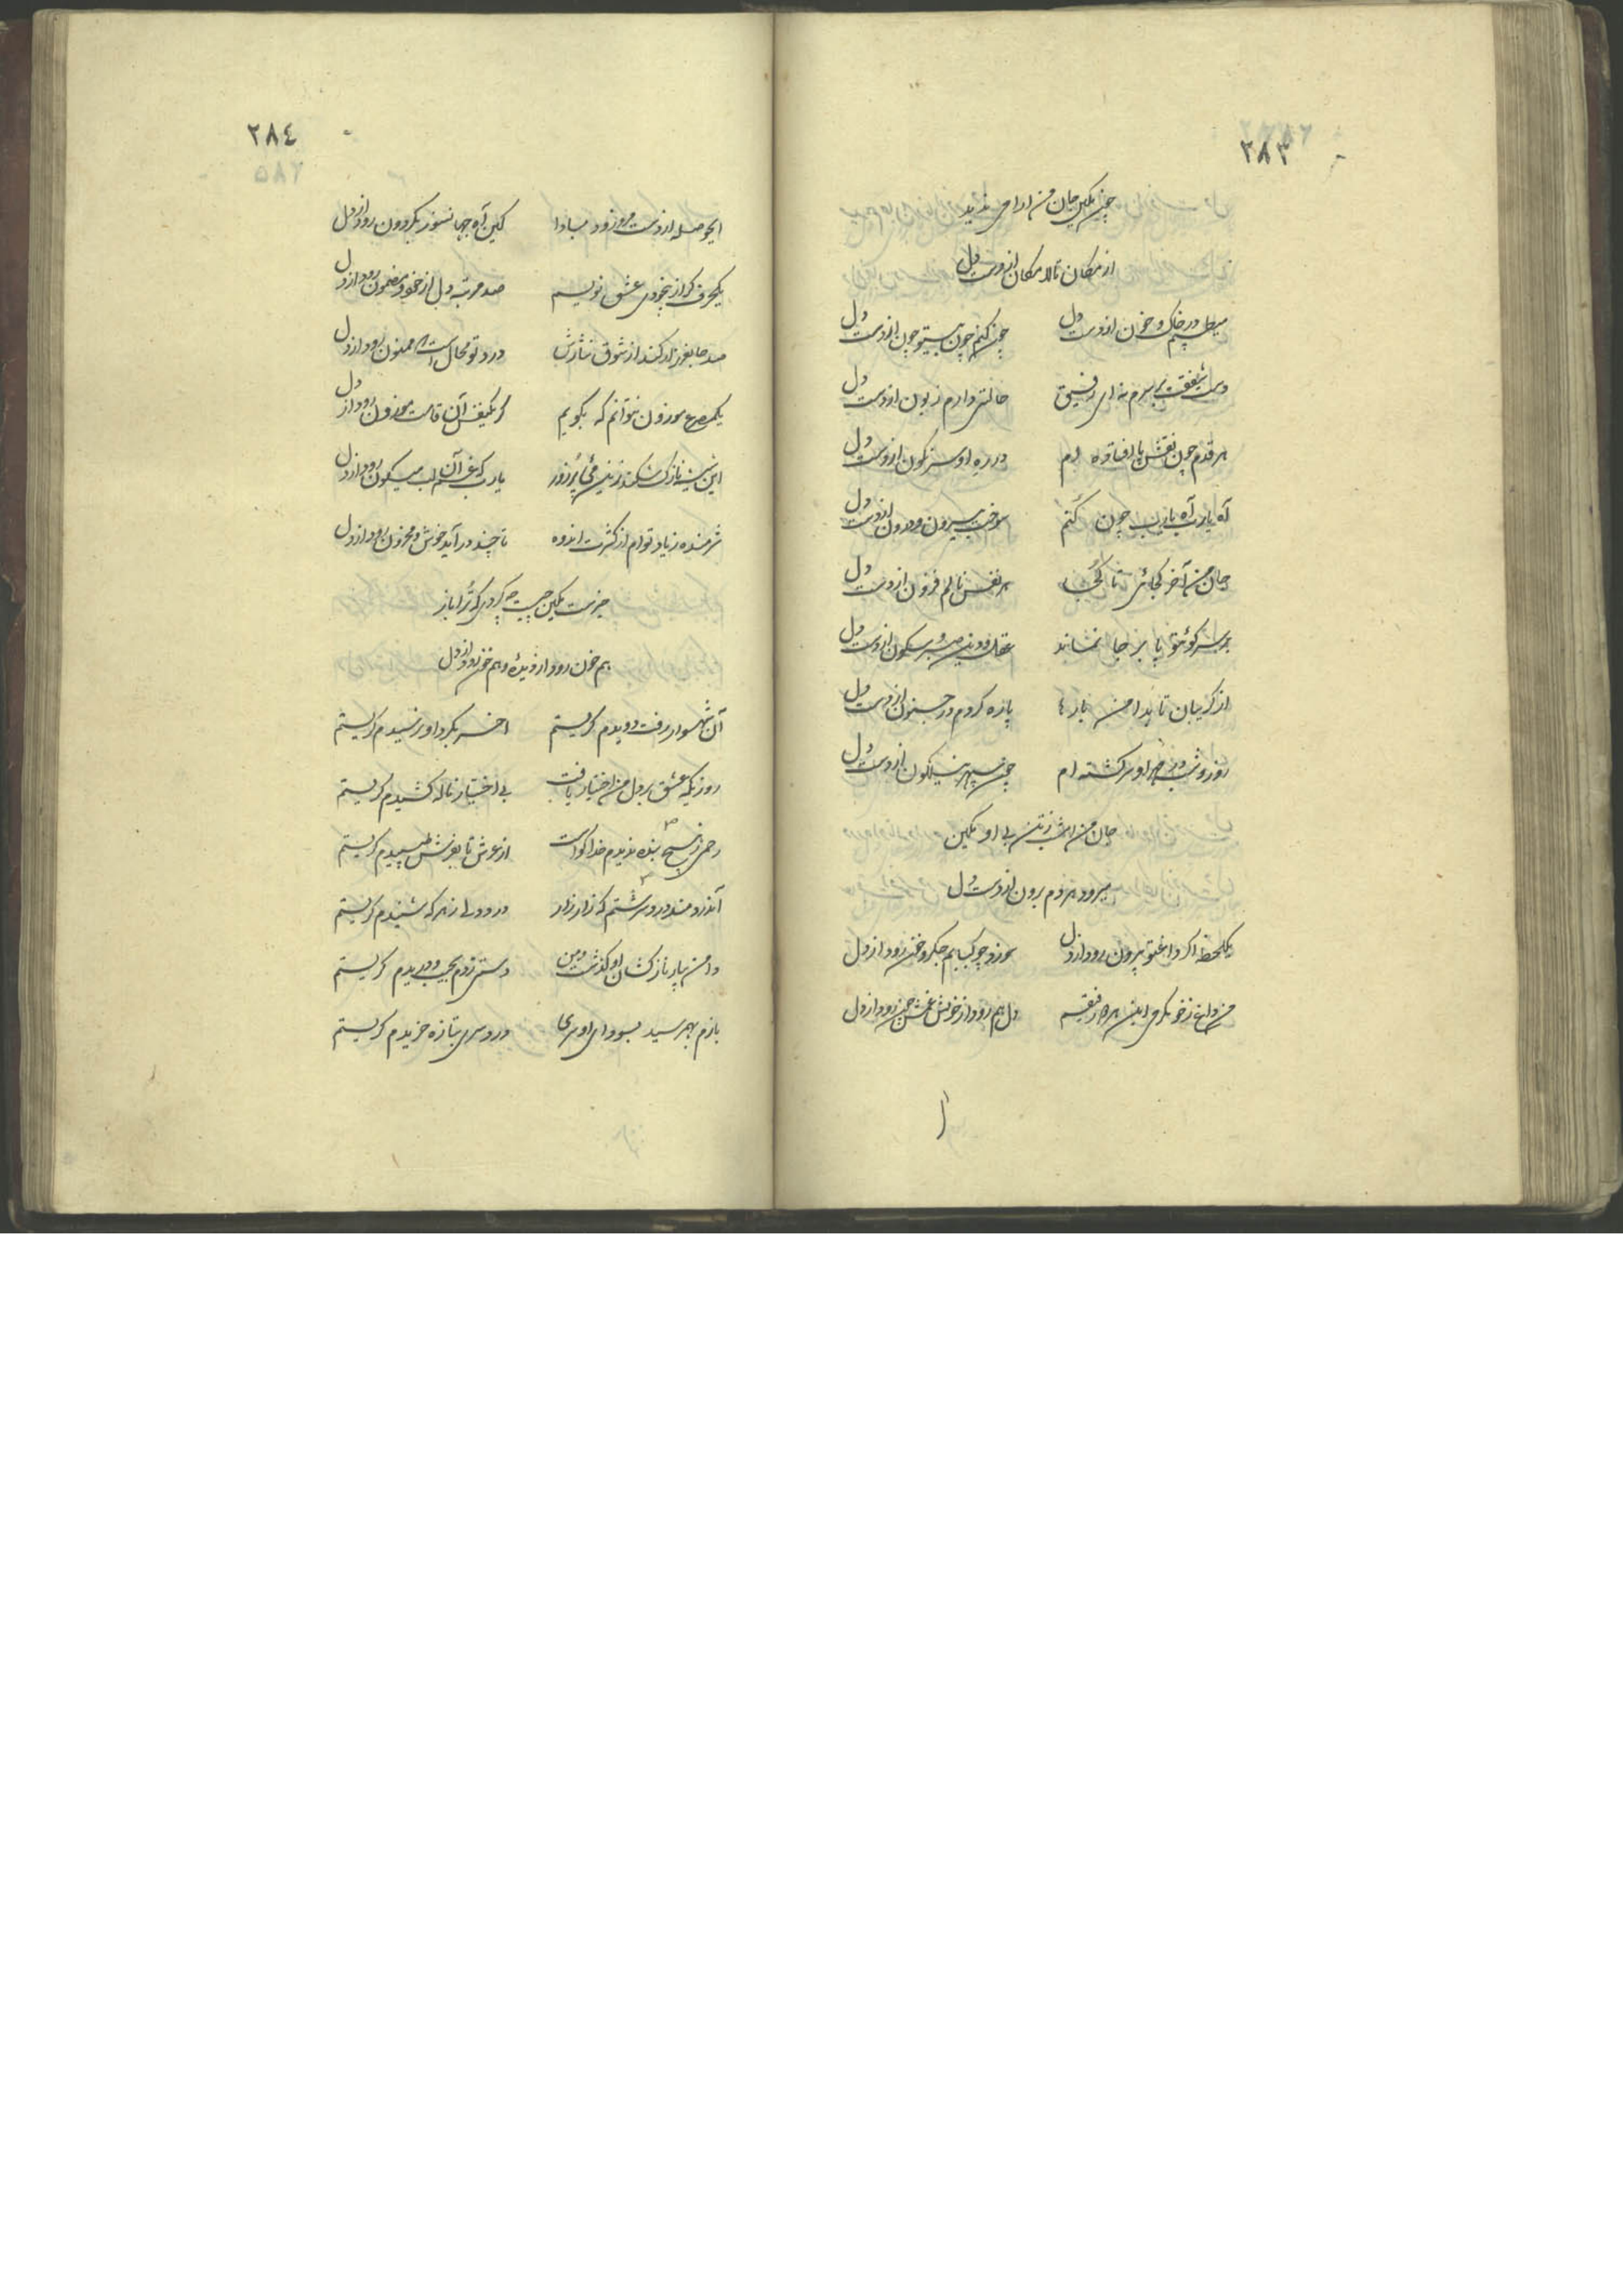 ٢٨٣
چون نمکین جان من ادا می ندید
از مکان تا لامکان از دست دل
میطپم در خاک و خون از دست دل
چون کنم چون نیستم چون از دست دل
دست شفقت بر سرم نه ای رفیق
حالتی دارم زبون از دست دل
هر قدم چون نقش پا افتاده ام
در ره او سرنگون از دست دل
آه یارب آه یارب چون کنم
سوخت بیرون و درون از دست دل
جان من آخر کجائی تا کجا
هر نفس نالم فزون از دست دل
بر سر کوئی تو پا بر جا نماند
عقل و دین صبر و سکون از دست دل
از گریبان تا بدامن بارها
پاره کردم در جنون از دست دل
روز و شب در مهر او سرگشته ام
چون سپهر نیلگون از دست دل
جان من امشب ز تن بی او نمکین
میرود هر دم برون از دست دل
یکلحظه اگر داغ تو بیرون رود از دل
سوزد چو کبابم جگر و خون رود از دل
من داغ ز خونگرمی این همه رفیقیم
دل هم رود از خویش غمش چون رود از دل
٢٨٤
ایحوصله از دست مرو زود مبادا
کین آه جهانسوز بگردون رود از دل
یکحرف گر از بیخودی عشق نویسم
صد مرتبه دل از خود و مضمون رود از دل
صد جا بغرزاد کند از شوق نثارش
درد تو محال است که ممنون رود از دل
یکمصرع موزون نتوانم که بگویم
گر یکنفس آن قامت موزون رود از دل
این شیشه نازک شکند زین می پر زور
یارب که غم آن لب میگون رود از دل
شرمنده ز یاد توام از کثرت اندوه
تا چند در آید خوش و محزون رود از دل
حزنت نمکین چیست چه کردی که ترا باز
هم خون رود از دیده و هم خون رود از دل
آن شهسوار رفت دویدم گریستم
آخر بگرد او نرسیدم گریستم
روزیکه عشق بر دل من اختیار یافت
بی اختیار ناله کشیدم گریستم
رحمی ز هیچ بنده ندیدم خدا گواست
از عرش تا بفرش طپیدم گریستم
آندردمند درد سرشتم که زار زار
درد دلی ز هر که شنیدم گریستم
دامن بناز کشان او گذشت و من
دستی زدم بجیب و دریدم گریستم
بازم بهم رسید بسودای او سری
درد سری بتازه خریدم گریستم